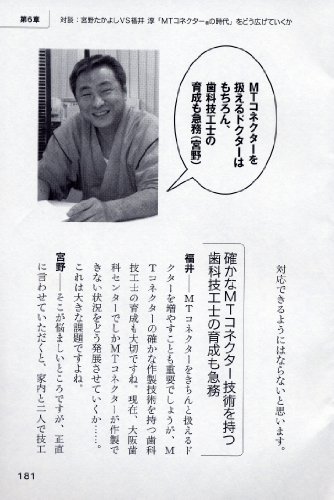 第6章
対談：宮野たかよしVS福井 淳「MTコネクター®の時代」をどう広げていくか
MTコネクターを
扱えるドクターは
もちろん、
歯科技工士の
育成も急務（宮野）
対応できるようにはならないと思います。
確かなMTコネクター技術を持つ
歯科技工士の育成も急務
福井――MTコネクターをきちんと扱えるド
クターを増やすことも重要でしょうが、M
Tコネクターの確かな作製技術を持つ歯科
技工士の育成も大切ですね。現在、大阪歯
科センターでしかMTコネクターが作製で
きない状況をどう発展させていくか……。
これは大きな課題ですよね。
宮野――そこが悩ましいところですが、正直
に言わせていただくと、家内と二人で技工
181